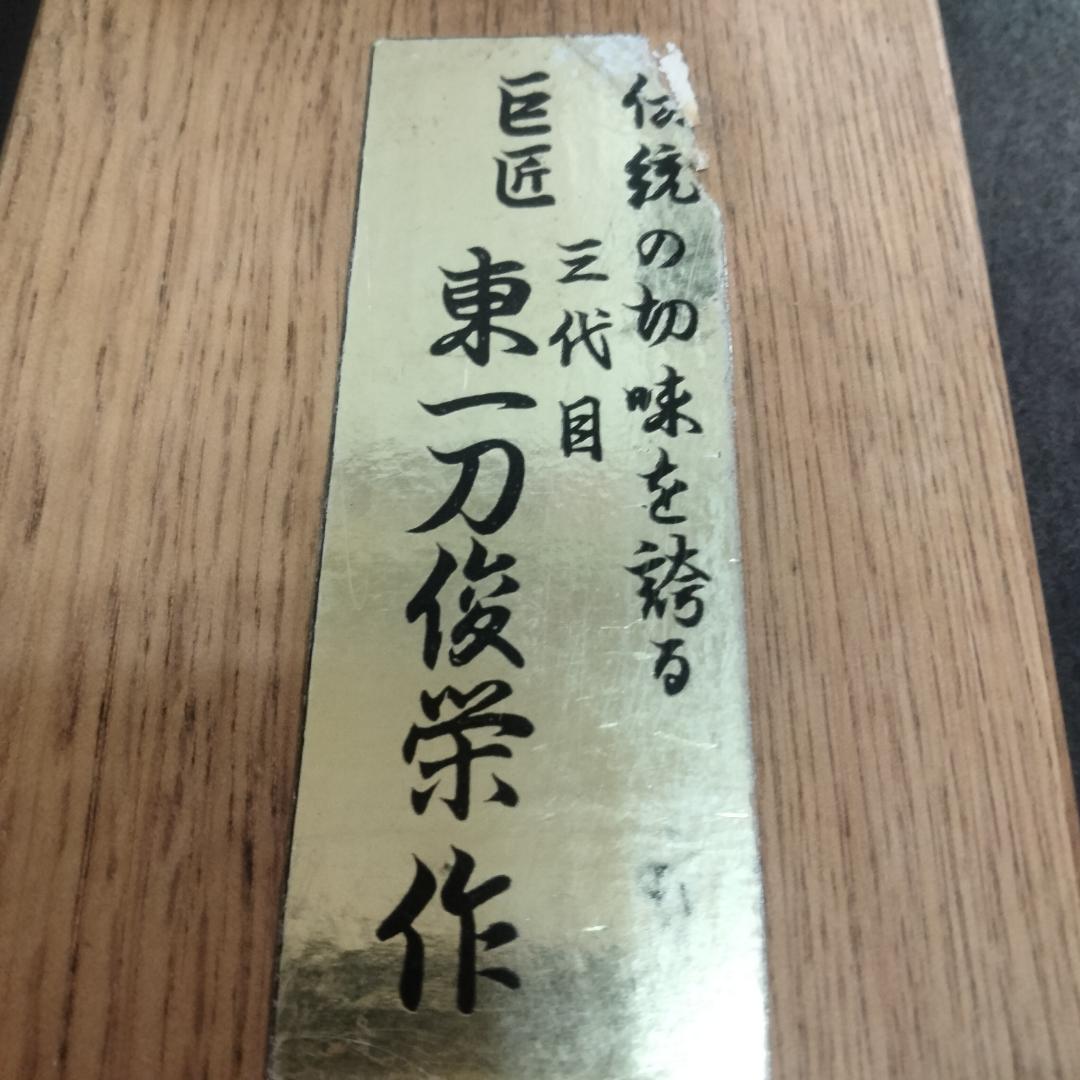 伝統の切味を誇る
三代目
巨匠 東一刀俊栄作